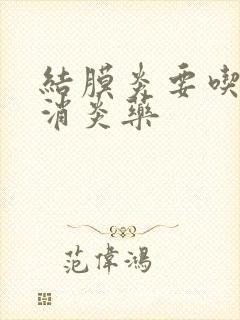 結膜炎要喫
消炎藥
范偉鴻